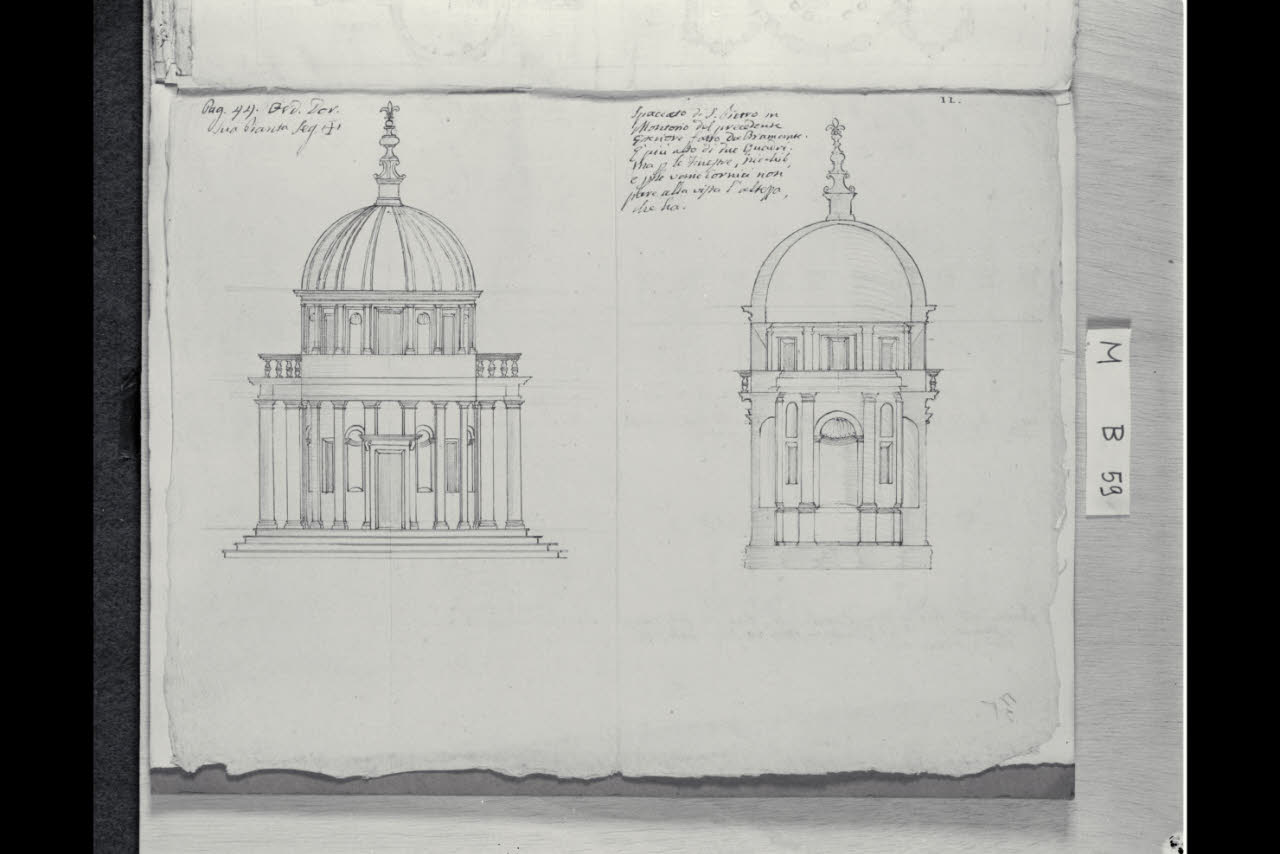 Pag. 44. Ord. Ter.
Sua Pianta seg.
Spaccato di S. Pietro in
Montorio del precedente
fatto da Bramante.
È più alto di due
Ma p. le Finestre, Nicchie,
e cornici non
pare alla vista l'altezza,
che ha.
II.
M B 59